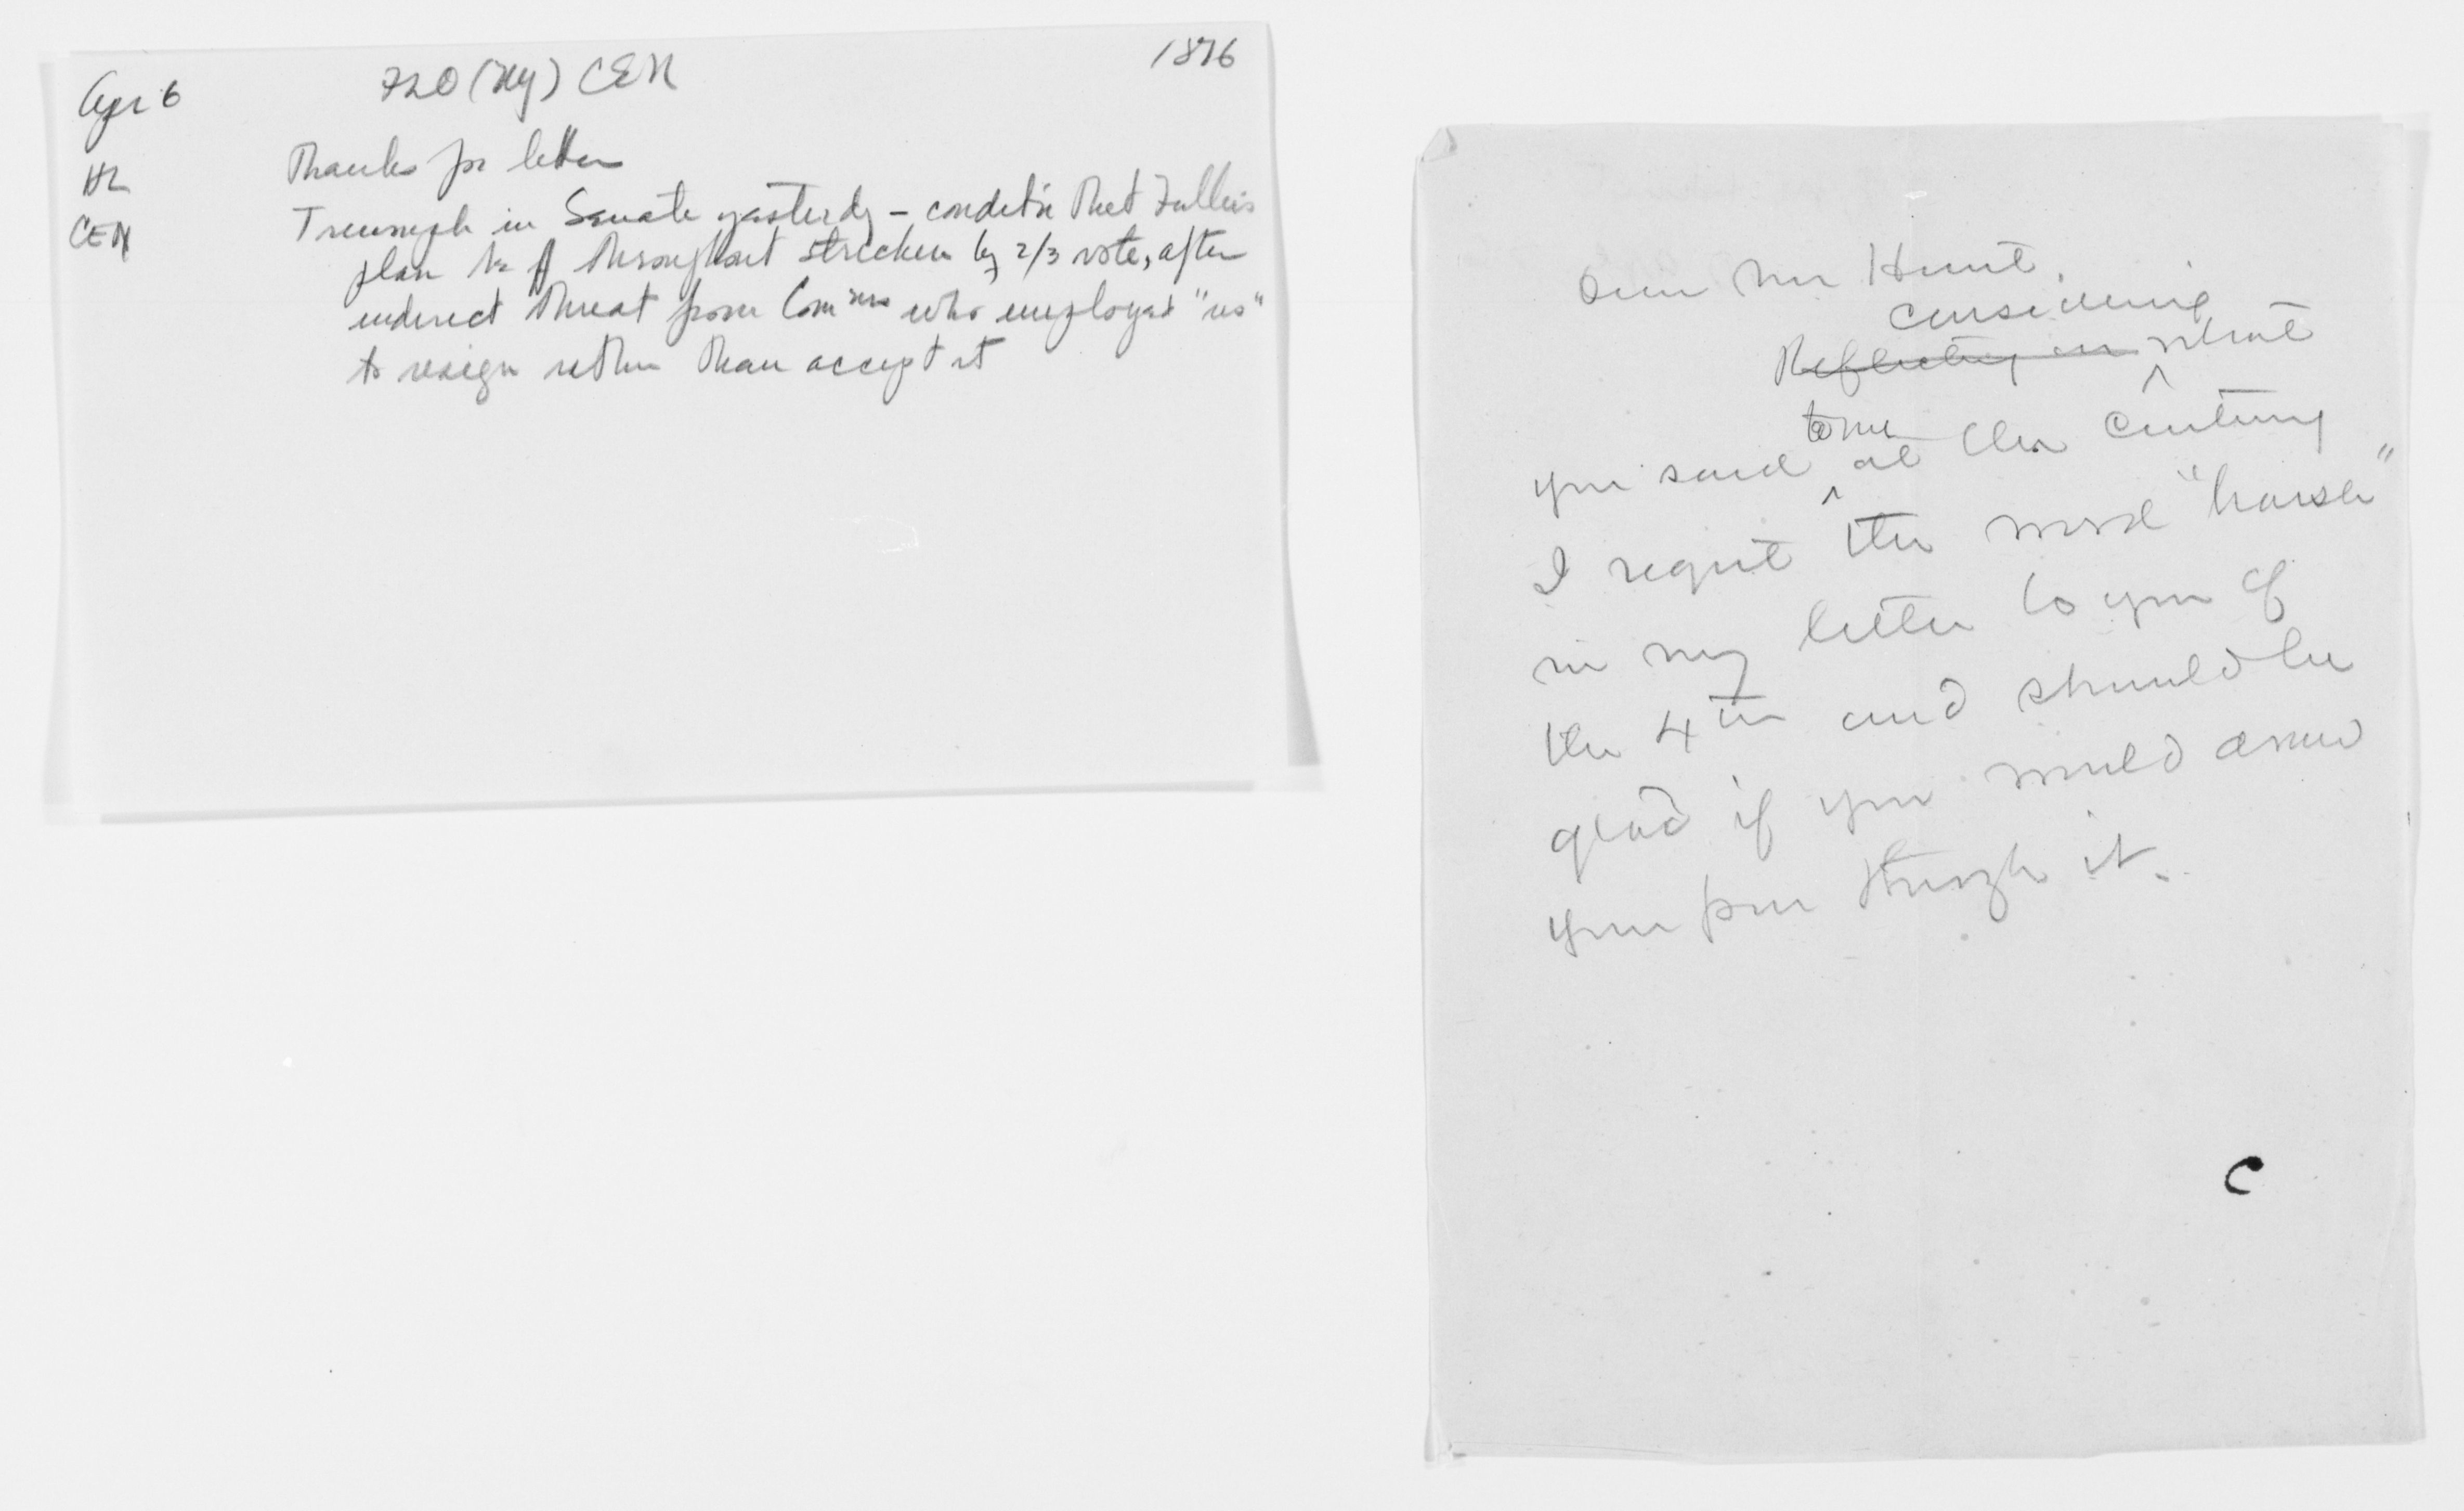 Apr 6 FLO (NY) CEN 1876
HL
CEN
Thanks for letter
Triumph in Senate yesterdy – condit'n that Fuller's
plan be throughout stricken by 2/3 vote, after
indirect threat from Com'rs who employed "us"
to resign rather than accept it
Dear Mr Hunt,
considering
Reflecting on what
to me
you said at the Century
I regret the word "harsh"
in my letter to you of
the 4th and should be
glad if you would draw
your pen through it.
C